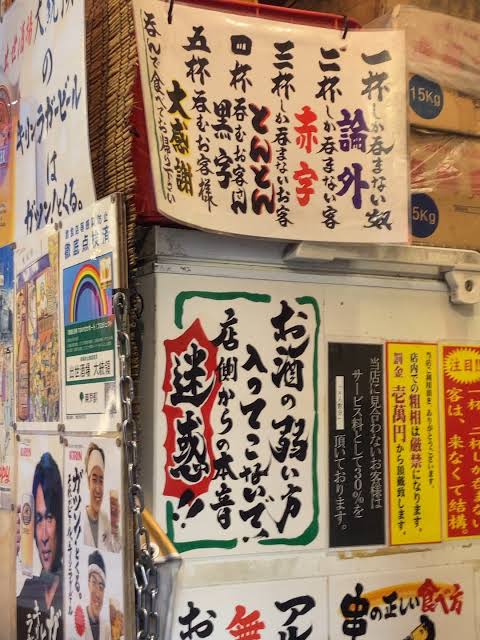 一杯しか呑まない奴
論外
二杯しか呑まない客
赤字
三杯しか呑まないお客
とんとん
四杯呑むお客さん
黒字
五杯呑むお客様
大感謝
呑んで食べてお帰り下さい
15Kg
5Kg
のキリンラガービールは
ガツン!とくる。
徹底点検済
出世酒場 大統領
東京都
お酒の弱い方
入ってこないで、
店側からの本音
迷惑!!
当店に見合わないお客様は
サービス料として30%を
頂いております。
当店ご利用頂き、ありがとうございます。
店内での粗相は厳禁になります。
罰金 壱萬円から頂戴致します。
注目!!
一杯、二杯しか
客は、来なくて結構。
KIRIN
KIRIN
ガツン!とくる。
お
無
アル
串の正しい食べ方